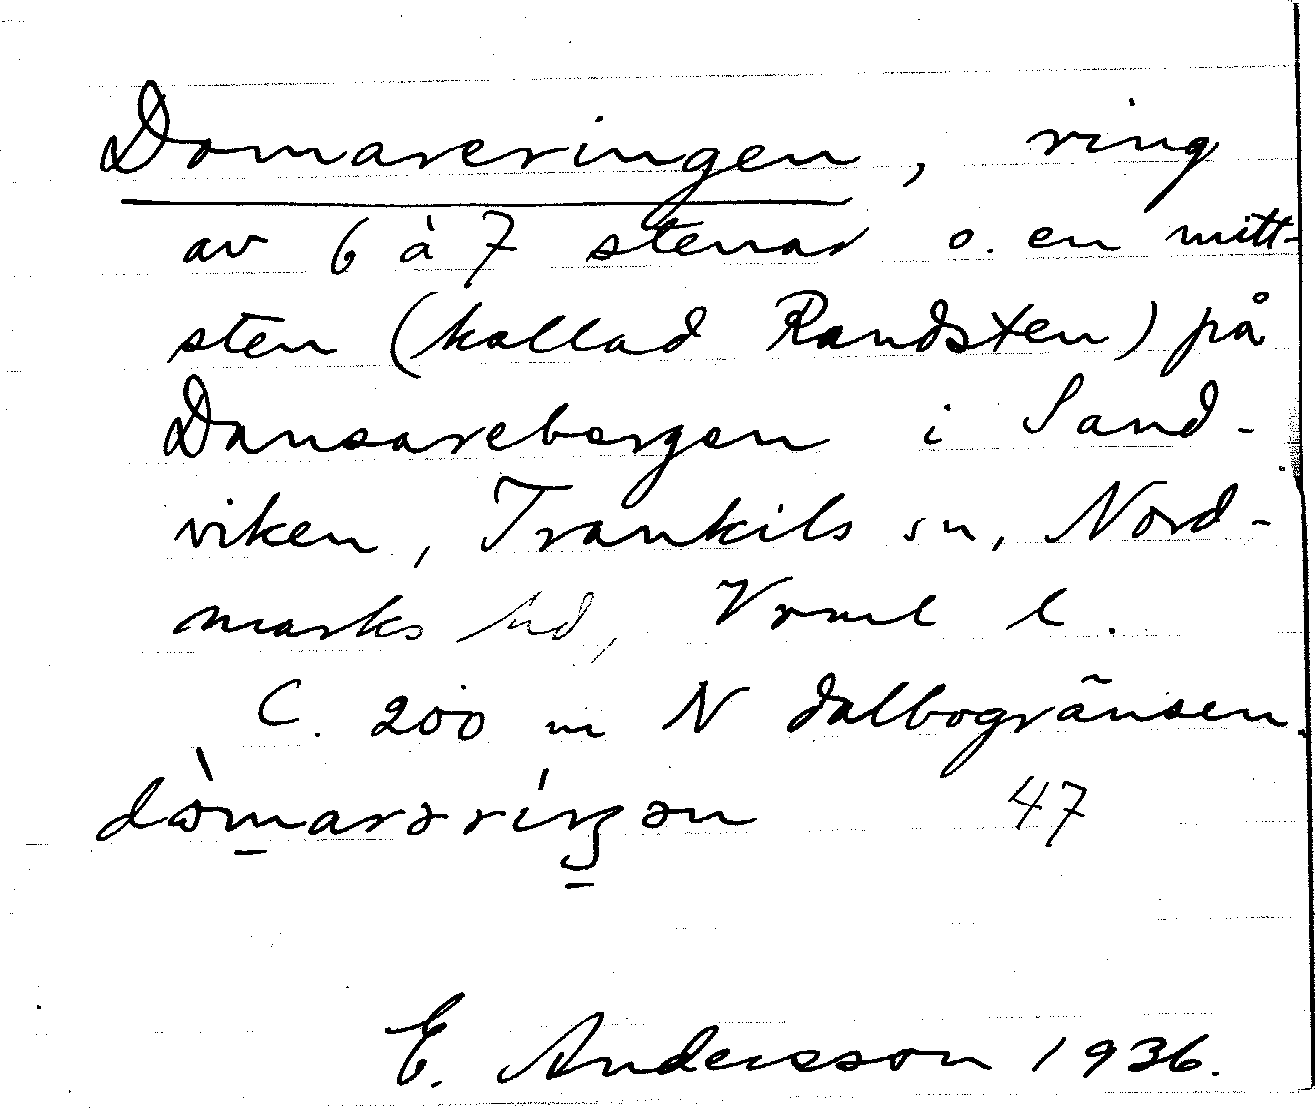 Domareringen, ring
av 6 à 7 stenar o. en mitt-
sten (kallad Randsten) på
Dansarebergen i Sand-
viken, Trankils sn, Nord-
marks hd, Vrml l.
C. 200 m N dalbogränsen.
dòmarəríŋən 47
E. Andersson 1936.